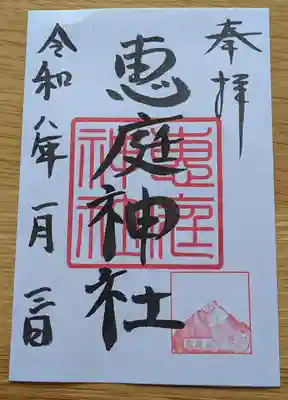 奉拝
恵庭神社
恵庭神社
令和八年一月三日